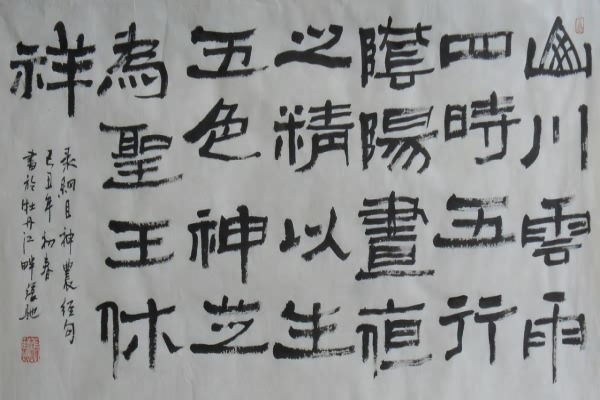 山川雲雨
四時五行
陰陽晝夜
之精以生
五色神芝
為聖王休
祥
录綱目神農经句
己丑年初春
書於牡丹江畔張馳